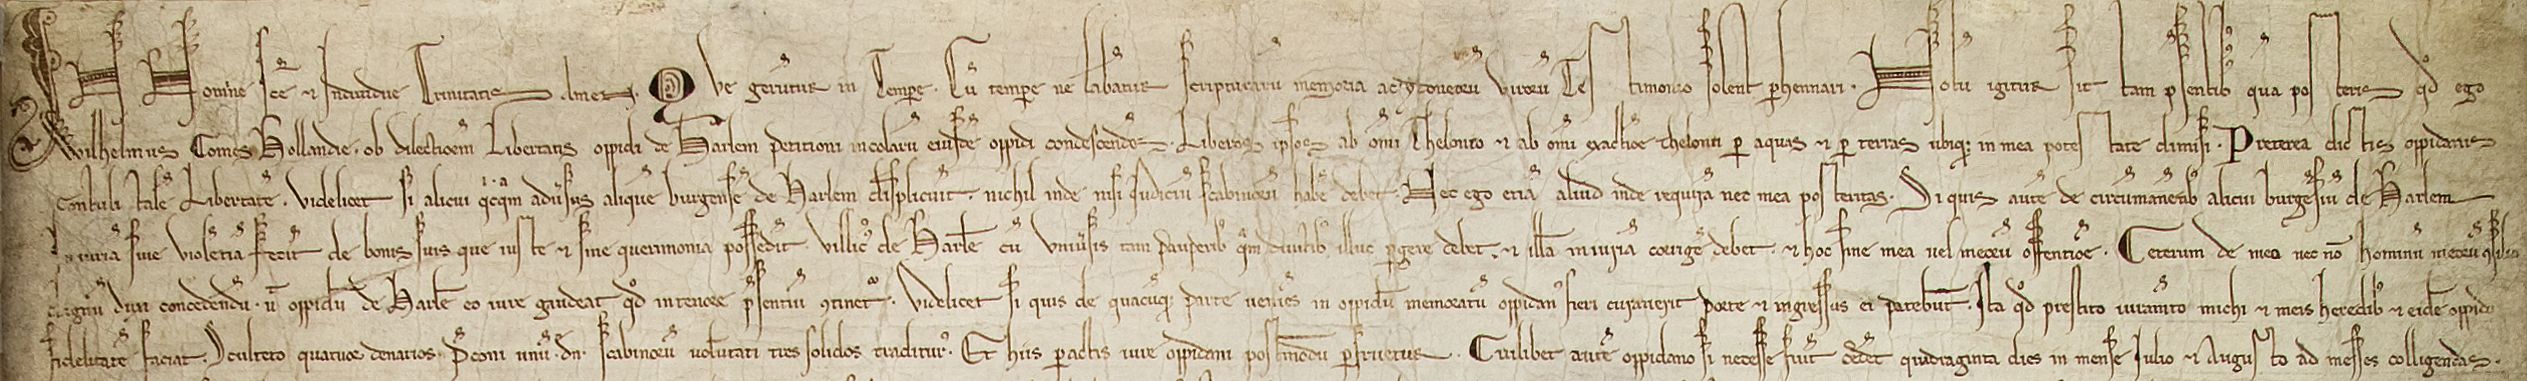 In Nomine Sc̄e ⁊ Individue Trinitatis Amen. Que gerūtur in Tempore. Cū tempore ne labātur scripturarū memoria ac ydoneorū virorū Testimonio solent perhennari. Notū igitur sit tam p̄sentibꝰ quā posteris qd̄ ego
Willhelmus Comes Hollandie. ob dilectionē Libertatis oppidi de Harlem petitioni incolarū eiusdē oppidi condescendēs. Liberos ipsos ab omī Thelonio ⁊ ab omī exactiōe thelonii ꝑ aquas ⁊ ꝑ terras ubiqꝫ in mea potestate dimisi. Preterea dictis oppidanis
contuli talē Libertatē. Videlicet si alicui qicqam adūsus aliquē burgensē de Harlem displicuit. nichil inde nisi iudiciū scabinorū habē debet. Nec ego etiā aliud inde requirā nec mea posteritas. Si quis autē de circūmanētibꝰ alicui burgēsiū de Harlem
Iniuriā sive violētiā fecit de bonis suis que iuste ⁊ sine querimonia possedit. villicꝰ de Harlē cū univsis tam pauperibꝰ qām divitibꝰ illuc pergere debet. ⁊ illā iniuriā corrigē debet. ⁊ hoc sine mea vel meorū offensiōe. Ceterum de meo nec nō hominū meorū ꝯsilio
dignū duxi concedendū. ut oppidū de Harlē eo iure gaudeat qd̄ in tenore p̄sentiū ꝯtinetᵘʳ. Videlicet si quis de quacūqꝫ parte veniēs in oppidū memoratū oppidanꝰ fieri curaverit porte ⁊ ingressus ei patebūt. Ita qd̄ prestito iuramēto michi ⁊ meis heredibꝰ ⁊ eidē oppido
fidelitatē faciat. Sculteto quatuor denarios. P̄coni unū. dn̄. scabinorū volūtati tres solidos traditurꝰ. Et hiis peractis iure oppidani postmodū perfruetur. Cuilibet autē oppidano si necesse fūit dedit quadraginta dies in mense Iulio ⁊ Augusto ad messes colligendas.